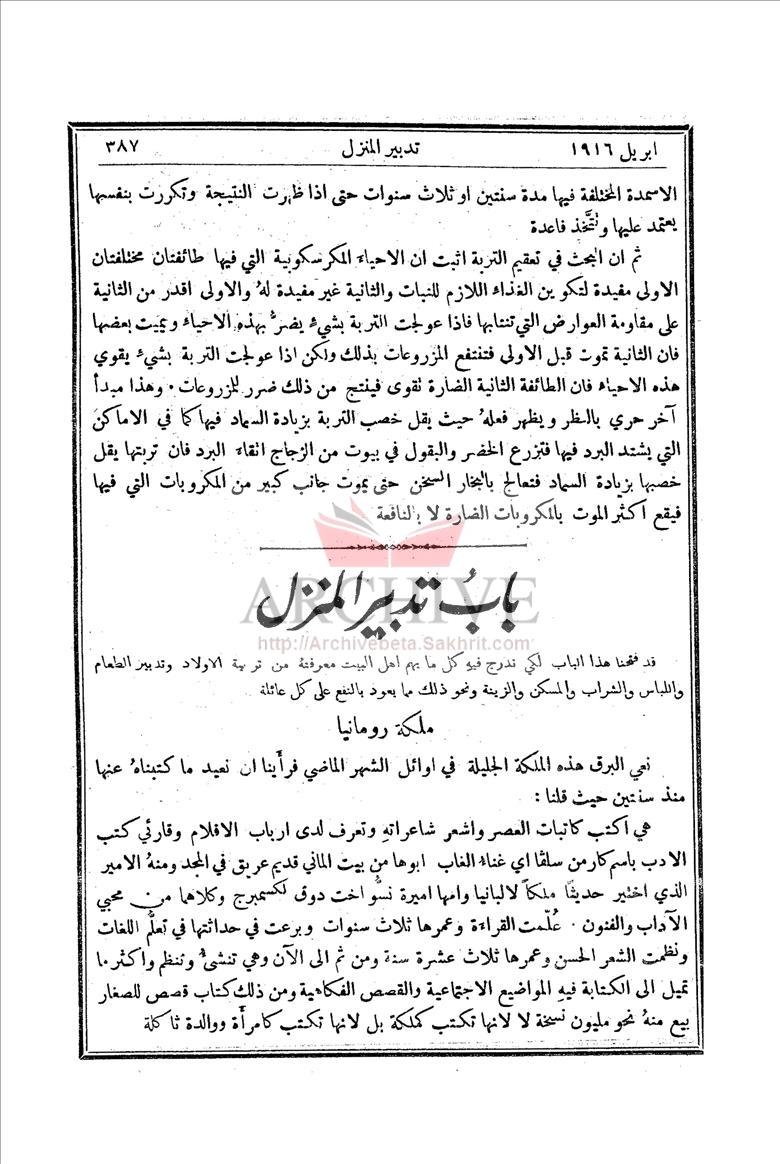 ابريل ١٩١٦ تدبير المنزل ٣٨٧
الاسمدة المختلفة فيها مدة سنتين او ثلاث سنوات حتى اذا ظهرت النتيجة وتكررت بنفسها
يعتمد عليها وتتَّخذ قاعدة
ثم ان البحث في تعقيم التربة اثبت ان الاحياء المكرسكوبية التي فيها طائفتان مختلفتان
الاولى مفيدة لتكوين الغذاء اللازم للنبات والثانية غير مفيدة لهُ والاولى اقدر من الثانية
على مقاومة العوارض التي تنتابها فاذا عولجت التربة بشيءٍ يضرُّ بهذه الاحياء ويميت بعضها
فان الثانية تموت قبل الاولى فتنتفع المزروعات بذلك ولكن اذا عولجت التربة بشيءٍ يقوي
هذه الاحياء فان الطائفة الثانية الضارة تقوى فينتج من ذلك ضرر للمزروعات. وهذا مبدأ
آخر حري بالنظر ويظهر فعلهُ حيث يقل خصب التربة بزيادة السماد فيها كما في الاماكن
التي يشتد البرد فيها فتزرع الخضر والبقول في بيوت من الزجاج اتقاء البرد فان تربتها يقل
خصبها بزيادة السماد فتعالج بالبخار السخن حتى يموت جانب كبير من المكروبات التي فيها
فيقع اكثر الموت بالمكروبات الضارة لا بالنافعة
ARCHIVE
بابُ تدبير المنزل
http://Archivebeta.Sakhrit.com
قد فتحنا هذا الباب لكي ندرج فيه كل ما يهم اهل البيت معرفتهُ من تربية الاولاد وتدبير الطعام
واللباس والشراب والمسكن والزينة ونحو ذلك مما يعود بالنفع على كل عائلة
ملكة رومانيا
نعي البرق هذه الملكة الجليلة في اوائل الشهر الماضي فرأينا ان نعيد ما كتبناهُ عنها
منذ سنتين حيث قلنا:
هي اكتب كاتبات العصر واشعر شاعراتهِ وتعرف لدى ارباب الاقلام وقارئي كتب
الادب باسم كارمن سلڤا اي غناء الغاب ابوها من بيت الماني قديم عريق في المجد ومنهُ الامير
الذي اختير حديثًا ملكًا لالبانيا وامها اميرة نسُّو اخت دوق لكسمبرج وكلاهما من محبي
الآداب والفنون. عُلّمت القراءة وعمرها ثلاث سنوات وبرعت في حداثتها في تعلُّم اللغات
ونظمت الشعر الحسن وعمرها ثلاث عشرة سنة ومن ثم الى الآن وهي تنشئُ وتنظم واكثر ما
تميل الى الكتابة فيهِ المواضيع الاجتماعية والقصص الفكاهية ومن ذلك كتاب قصص للصغار
بيع منهُ نحو مليون نسخة لا لانها تكتب كملكة بل لانها تكتب كامرأة ووالدة ثاكلة